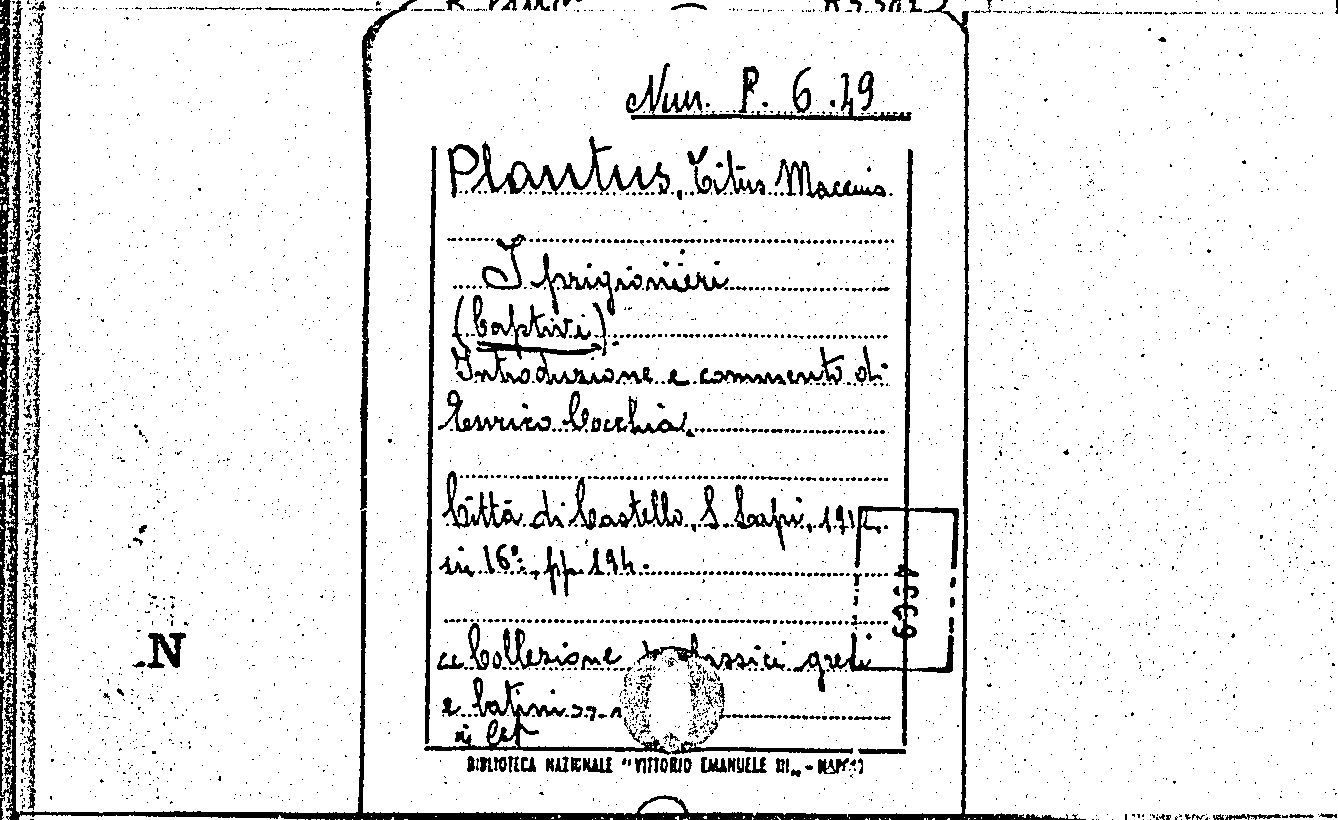 Nun. P. 6.49
Plautus, Titus Maccius
I prigionieri
(Captivi)
Introduzione e commento di
Enrico Cocchia,
Città di Castello, S. Lapi, 191
in 16°, pp. 194.
«Collezione di classici greci
e latini» - n
BIBLIOTECA NAZIONALE "VITTORIO EMANUELE III" - NAPOLI
N